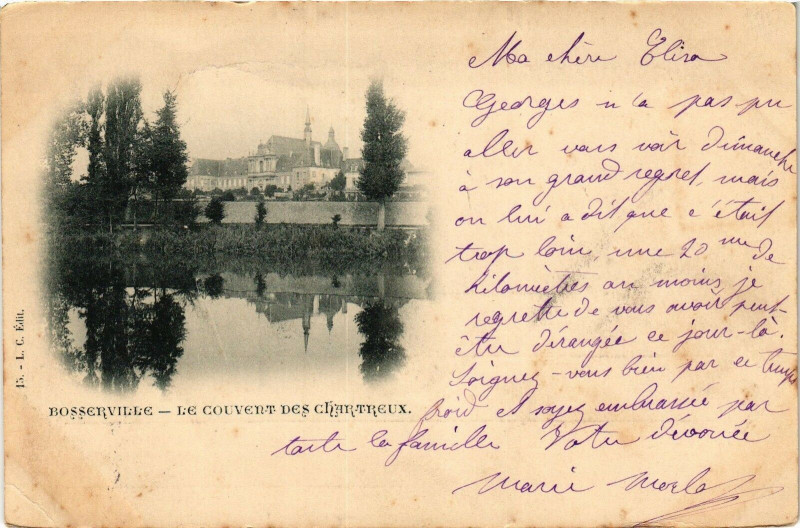 Ma chère Elisa
Georges n'a pas pu
aller vous voir Dimanche
à son grand regret, mais
on lui a dit que c'était
trop loin, une 20 me de
kilomètres au moins, je
regrette de vous avoir peut-
être dérangée ce jour-là.
Soignez-vous bien par ce temps
froid et soyez embrassée par
toute la famille Votre dévouée
Marie
15. - L. C. Édit.
BOSSERVILLE — LE COUVENT DES CHARTREUX.